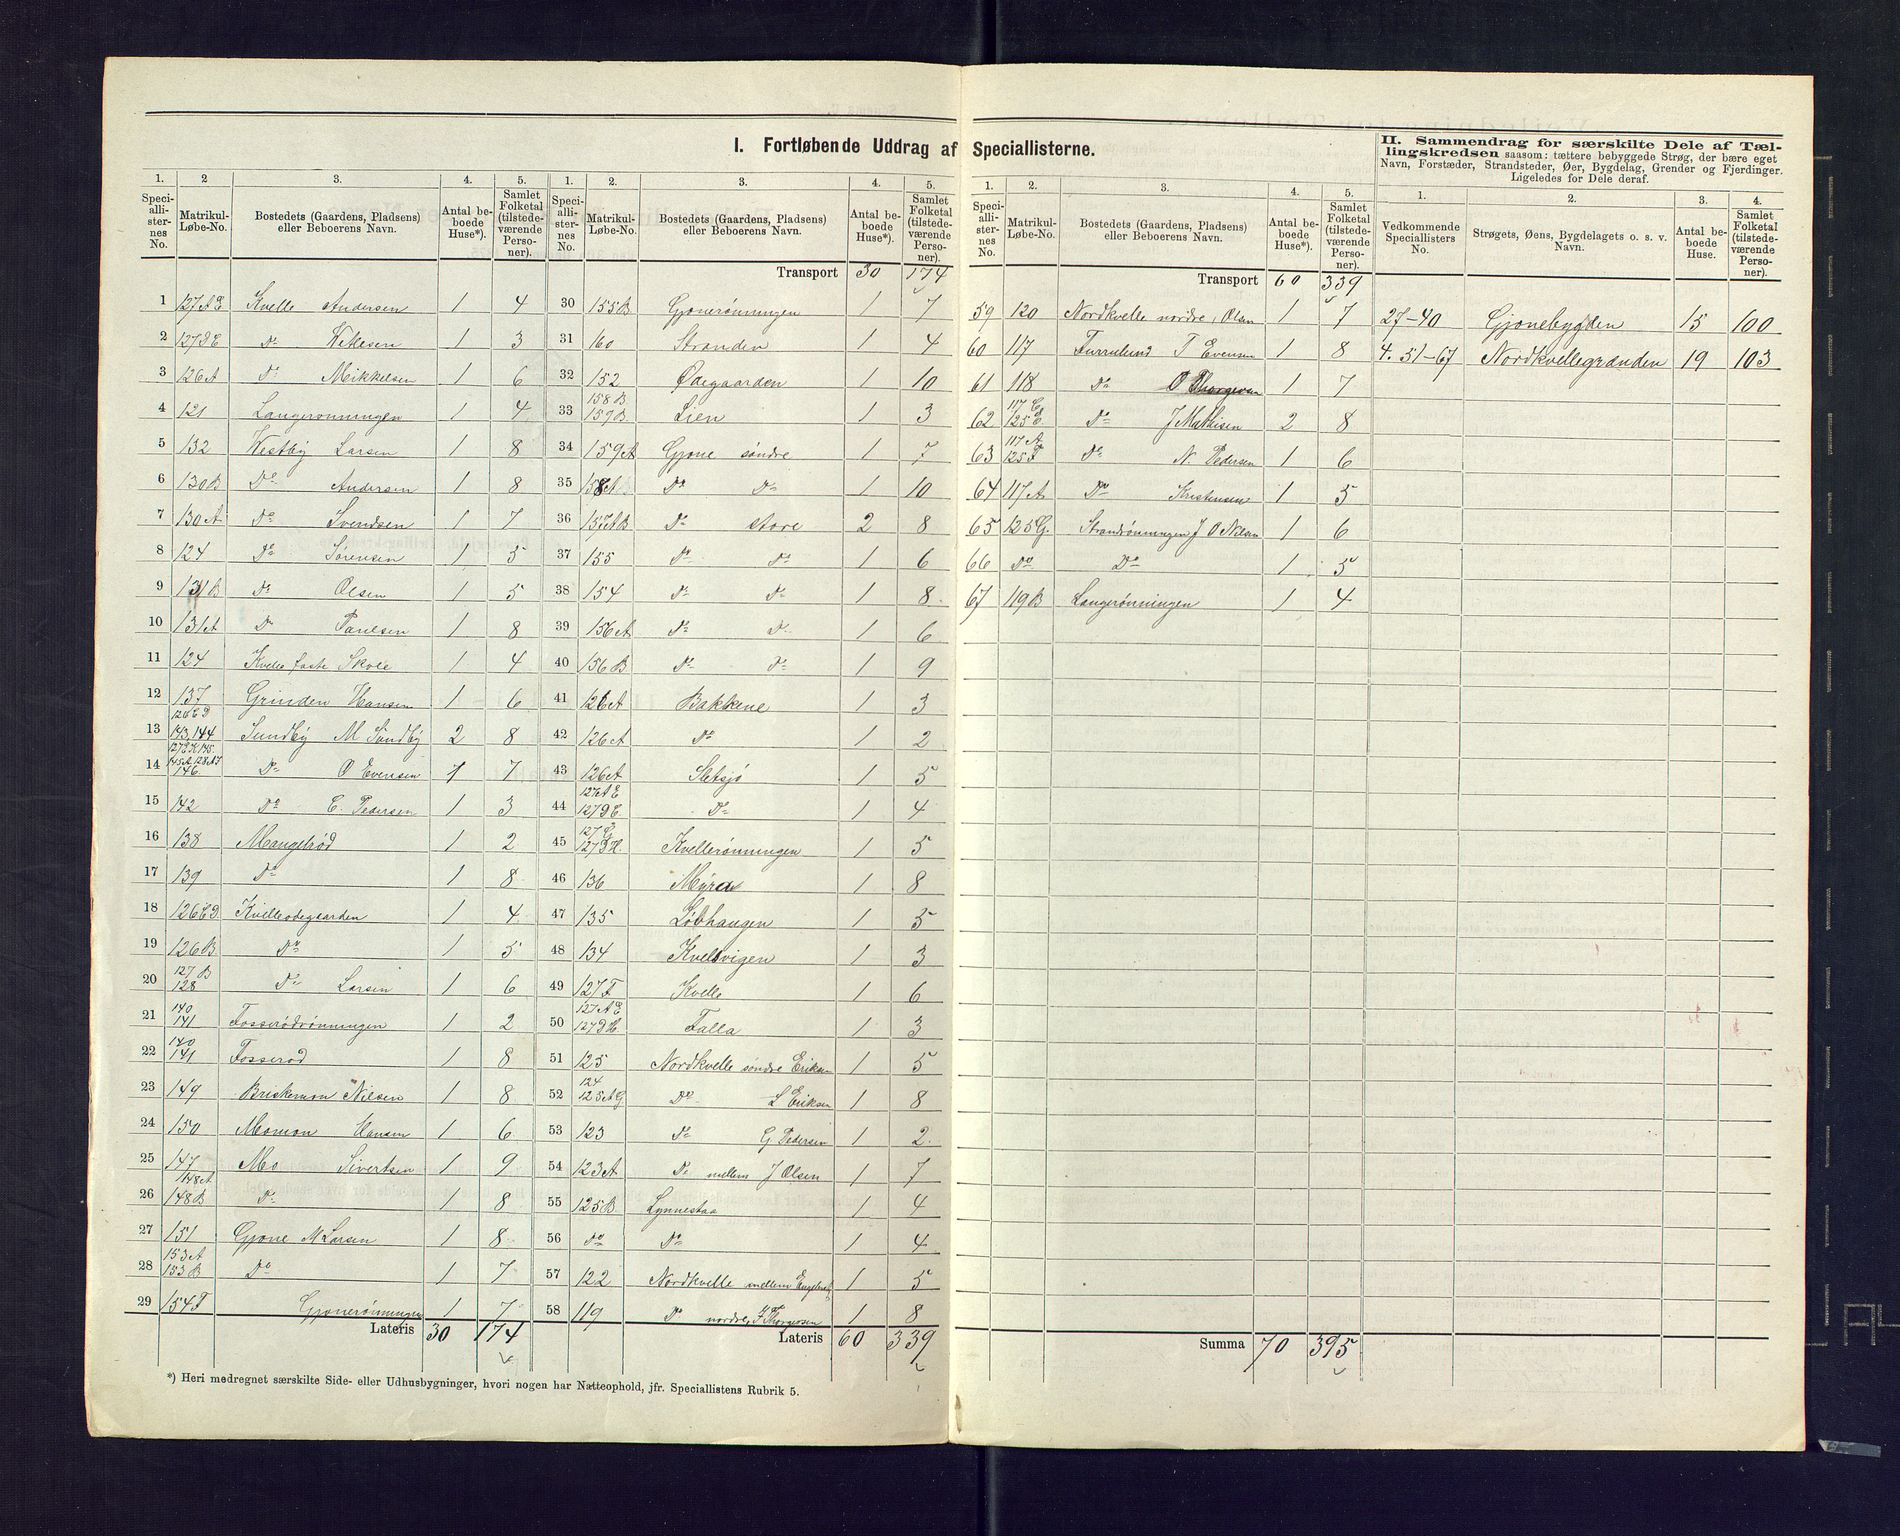 I. Fortløbende Uddrag af Speciallisterne.
II. Sammendrag for særskilte Dele af Tæl-
lingskredsen saasom: tættere bebyggede Strøg, der bære eget
Navn, Forstæder, Strandsteder, Øer, Bygdelag, Grender og Fjerdinger.
Ligeledes for Dele deraf.
1. 2 3. 4. 5.
Speciallisternes No. Matrikul-Løbe-No. Bostedets (Gaardens, Pladsens) eller Beboerens Navn. Antal beboede Huse*). Samlet Folketal (tilstedeværende Personer).
1 127AE Kvelle Andersen 1 4
2 127DE Do 1 3
3 126A Do Mikkelsen 1 6
4 121 Langerønningen 1 4
5 132 Vestby Larsen 1 8
6 130B Do Andersen 1 8
7 130A Do Svendsen 1 7
8 124 Do Sørensen 1 5
9 131B Do Olsen 1 5
10 131A Do Paulsen 1 8
11 124 Kvelle faste Skole 1 4
12 137 Grinden Hansen 1 6
13 126CD 143,144 Sundby M Sundby 2 8
14 146 Do O Evensen 1 7
15 142 Do C. Pedersen 1 3
16 138 Mangelrød 1 2
17 139 Do 1 8
18 126CD Kvelleødegaarden 1 4
19 126B Do 1 5
20 127B 128 Do Larsen 1 6
21 140 141 Fosserødrønningen 1 2
22 140 141 Fosserød 1 8
23 149 Briskemon Nilsen 1 8
24 150 Momon Hansen 1 6
25 147 Mo Sivertsen 1 9
26 148A 148B Do 1 8
27 151 Gjone M Larsen 1 8
28 153A 153B Do 1 7
29 154F Gjonerønningen 1 7
Lateris 30 174
*) Heri medregnet særskilte Side- eller Udhusbygninger, hvori nogen har Natteophold, jfr. Speciallistens Rubrik 5.
1. 2. 3. 4. 5.
Speciallisternes No. Matrikul-Løbe-No. Bostedets (Gaardens, Pladsens) eller Beboerens Navn. Antal beboede Huse*). Samlet Folketal (tilstedeværende Personer).
Transport 30 174
30 155B Gjonerønningen 1 7
31 160 Stranden 1 4
32 152 Ødegaarden 1 10
33 158B 159B Lien 1 3
34 159A Gjone søndre 1 7
35 158A Do Do 1 10
36 157AB Do store 2 8
37 155 Do Do 1 6
38 154 Do Do 1 8
39 156A Do Do 1 6
40 156B Do Do 1 9
41 126A Bakkene 1 3
42 126A Do 1 2
43 126A Sletsjø 1 5
44 127AE 127DE Do 1 4
45 127G 127DH. Kvellerønningen 1 5
46 136 Myra 1 8
47 135 Løbhaugen 1 5
48 134 Kvelvigen 1 3
49 127F Kvelle 1 6
50 127AE 127DH. Falla 1 3
51 125 Nordkvelle søndre Eriksen 1 5
52 124 125AG Do L Eriksen 1 8
53 123 Do G. Pedersen 1 2
54 123A Do mellem J Olsen 1 7
55 125B Lynnestaa 1 4
56 Do Do 1 4
57 122 Nordkvelle mellem 1 5
58 119 Do nordre, Thorgersen 1 8
Lateris 60 339
1. 2. 3. 4. 5.
Speciallisternes No. Matrikul-Løbe-No. Bostedets (Gaardens, Pladsens) eller Beboerens Navn. Antal beboede Huse*). Samlet Folketal (tilstedeværende Personer).
Transport 60 339
59 120 Nordkvelle nordre, Olsen 1 7
60 117 Furrulund T Evensen 1 8
61 118 Do O Thorgersen 1 7
62 117C 125E Do J Mathisen 2 8
63 117A 125F Do N. Pedersen 1 6
64 117A Do Kristensen 1 5
65 125G. Strandrønningen J O Nilsen 1 6
66 Do Do 1 5
67 119B Langerønningen 1 4
Summa 70 395
1. 2. 3. 4.
Vedkommende Speciallisters No. Strøgets, Øens, Bygdelagets o. s. v. Navn. Antal beboede Huse. Samlet Folketal (tilstedeværende Personer).
27-40 Gjonebygden 15 100
4. 51-67 Nordkvellegrænden 19 103